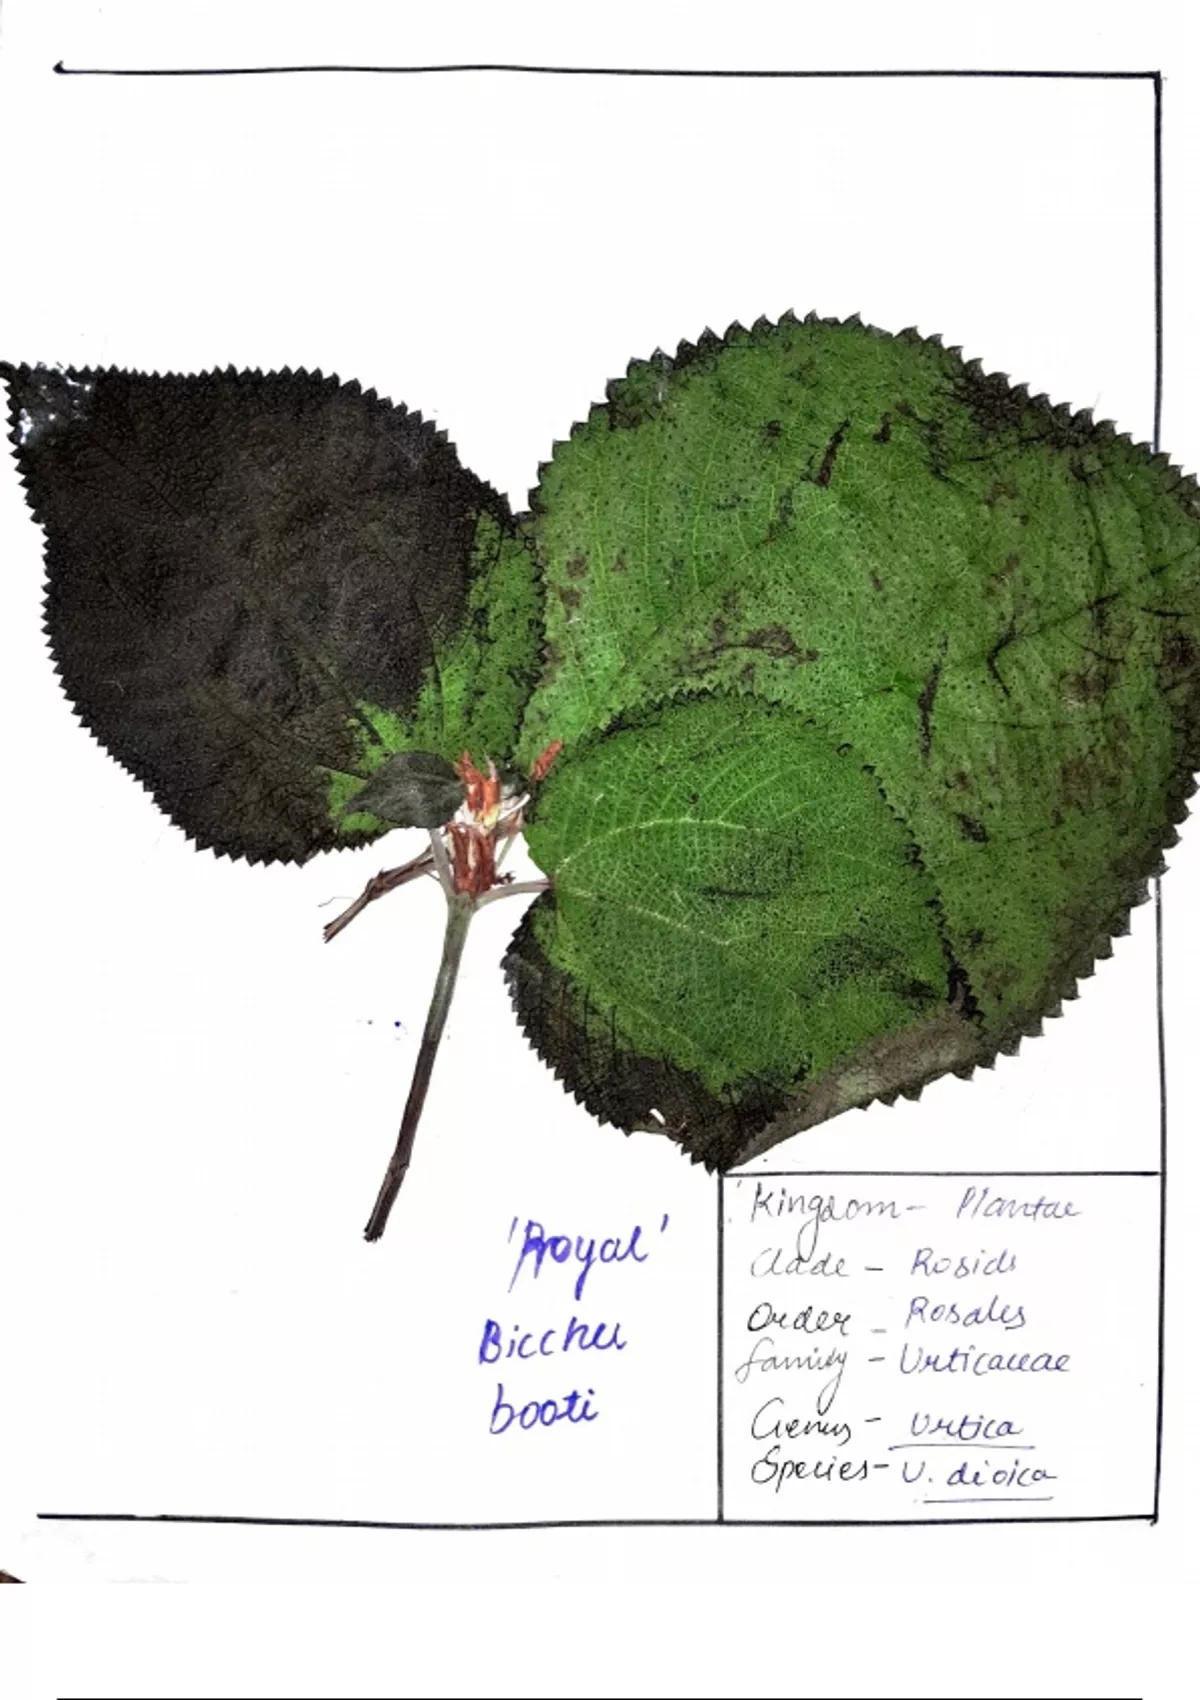 'Royal'
Bicchu
booti
Kingdom - Plantae
Clade - Rosids
Order - Rosales
family - Urticaceae
Genus - Urtica
Species - U. dioica